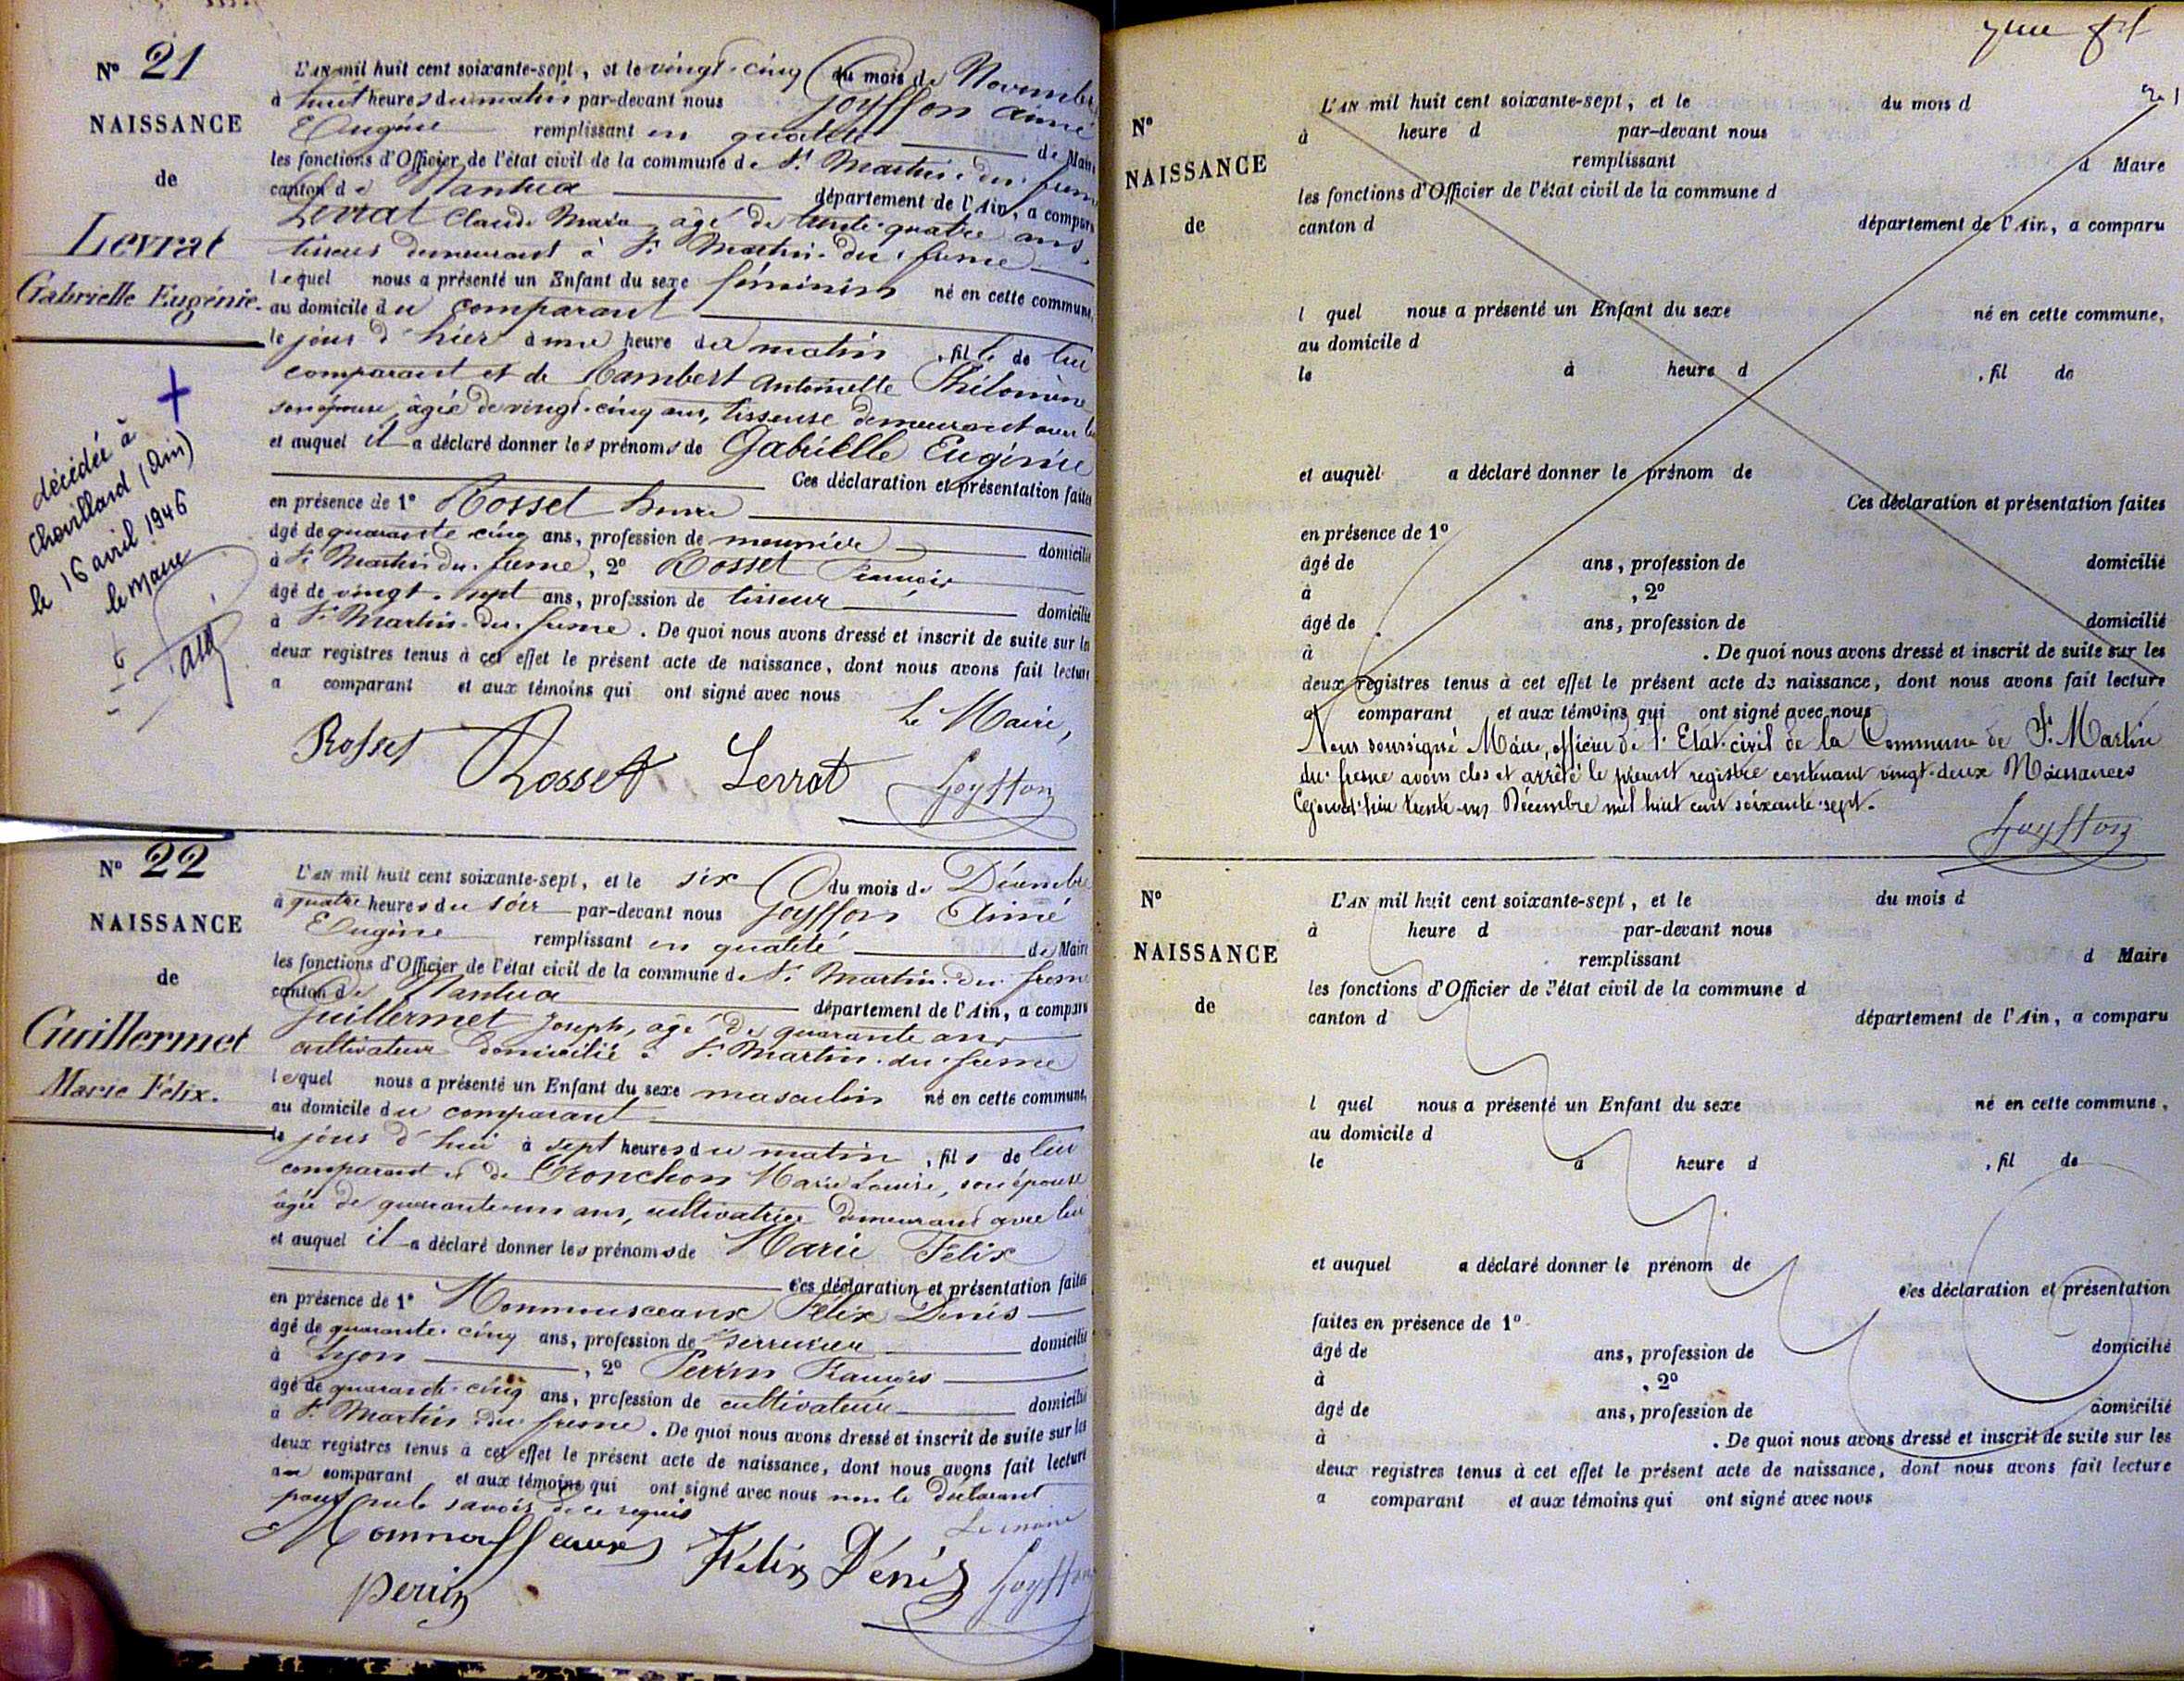 N° 21
NAISSANCE
de
Levrat
Gabrielle Eugénie.
décédée à
Chavillard (Ain)
le 16 avril 1946
le maire
L'AN mil huit cent soixante-sept, et le vingt-cinq du mois de Novembre
à huit heures du matin par-devant nous Goyffon Aimé
Eugène remplissant en qualité de Maire
les fonctions d'Officier de l'état civil de la commune de St Martin-du-fresne
canton de Nantua département de l'Ain, a comparu
Levrat Claude Marie âgé de trente-quatre ans,
tisseur demeurant à St Martin-du-fresne
lequel nous a présenté un Enfant du sexe féminin né en cette commune,
au domicile du comparant
le jour d'hier à une heure du matin, fille de lui
comparant et de Lambert Antoinette Philomène
son épouse, âgée de vingt-cinq ans, tisseuse demeurant avec lui
et auquel il a déclaré donner les prénoms de Gabrielle Eugénie
Ces déclaration et présentation faites
en présence de 1° Rosset
âgé de quarante-cinq ans, profession de meunier domicilié
à St Martin-du-fresne, 2° Rosset François
âgé de vingt-sept ans, profession de tisseur domicilié
à St Martin-du-fresne. De quoi nous avons dressé et inscrit de suite sur les
deux registres tenus à cet effet le présent acte de naissance, dont nous avons fait lecture
a comparant et aux témoins qui ont signé avec nous
Le Maire,
Rosset Rosset Levrat Goyffon
N° 22
NAISSANCE
de
Guillermet
Marie Félix.
L'AN mil huit cent soixante-sept, et le six du mois de Décembre
à quatre heures du soir par-devant nous Goyffon Aimé
Eugène remplissant en qualité de Maire
les fonctions d'Officier de l'état civil de la commune de St Martin-du-fresne
canton de Nantua département de l'Ain, a comparu
Guillermet Joseph, âgé de quarante ans,
cultivateur domicilié à St Martin-du-fresne
lequel nous a présenté un Enfant du sexe masculin né en cette commune,
au domicile du comparant
le jour d'hui à sept heures du matin, fils de lui
comparant et de Tronchon Marie Louise, son épouse
âgée de quarante-un ans, cultivatrice demeurant avec lui
et auquel il a déclaré donner les prénoms de Marie Félix
Ces déclaration et présentation faites
en présence de 1° Mommusceaux Félix Denis
âgé de quarante-cinq ans, profession de serrurier domicilié
à Lyon, 2° Perrin François
âgé de quarante-cinq ans, profession de cultivateur domicilié
à St Martin-du-fresne. De quoi nous avons dressé et inscrit de suite sur les
deux registres tenus à cet effet le présent acte de naissance, dont nous avons fait lecture
au comparant et aux témoins qui ont signé avec nous non le déclarant
pour ne le savoir de ce requis
Le maire
Mommusseaux Félix Dénis Goyffon
Perrin
N°
NAISSANCE
de
L'AN mil huit cent soixante-sept, et le du mois d
à heure d par-devant nous
remplissant d Maire
les fonctions d'Officier de l'état civil de la commune d
canton d département de l'Ain, a comparu
l quel nous a présenté un Enfant du sexe né en cette commune,
au domicile d
le à heure d , fil de
et auquel a déclaré donner le prénom de
Ces déclaration et présentation faites
en présence de 1°
âgé de ans, profession de domicilié
à , 2°
âgé de ans, profession de domicilié
à . De quoi nous avons dressé et inscrit de suite sur les
deux registres tenus à cet effet le présent acte de naissance, dont nous avons fait lecture
a comparant et aux témoins qui ont signé avec nous
Nous soussigné Maire, officier de l'Etat-civil de la Commune de St Martin
du-fresne avons clos et arrêté le présent registre contenant vingt-deux Naissances
Cejourd'hui trente-un Décembre mil huit cent soixante-sept.
Goyffon
N°
NAISSANCE
de
L'AN mil huit cent soixante-sept, et le du mois d
à heure d par-devant nous
remplissant d Maire
les fonctions d'Officier de l'état civil de la commune d
canton d département de l'Ain, a comparu
l quel nous a présenté un Enfant du sexe né en cette commune,
au domicile d
le à heure d , fil de
et auquel a déclaré donner le prénom de
Ces déclaration et présentation
faites en présence de 1°
âgé de ans, profession de domicilié
à , 2°
âgé de ans, profession de domicilié
à . De quoi nous avons dressé et inscrit de suite sur les
deux registres tenus à cet effet le présent acte de naissance, dont nous avons fait lecture
a comparant et aux témoins qui ont signé avec nous